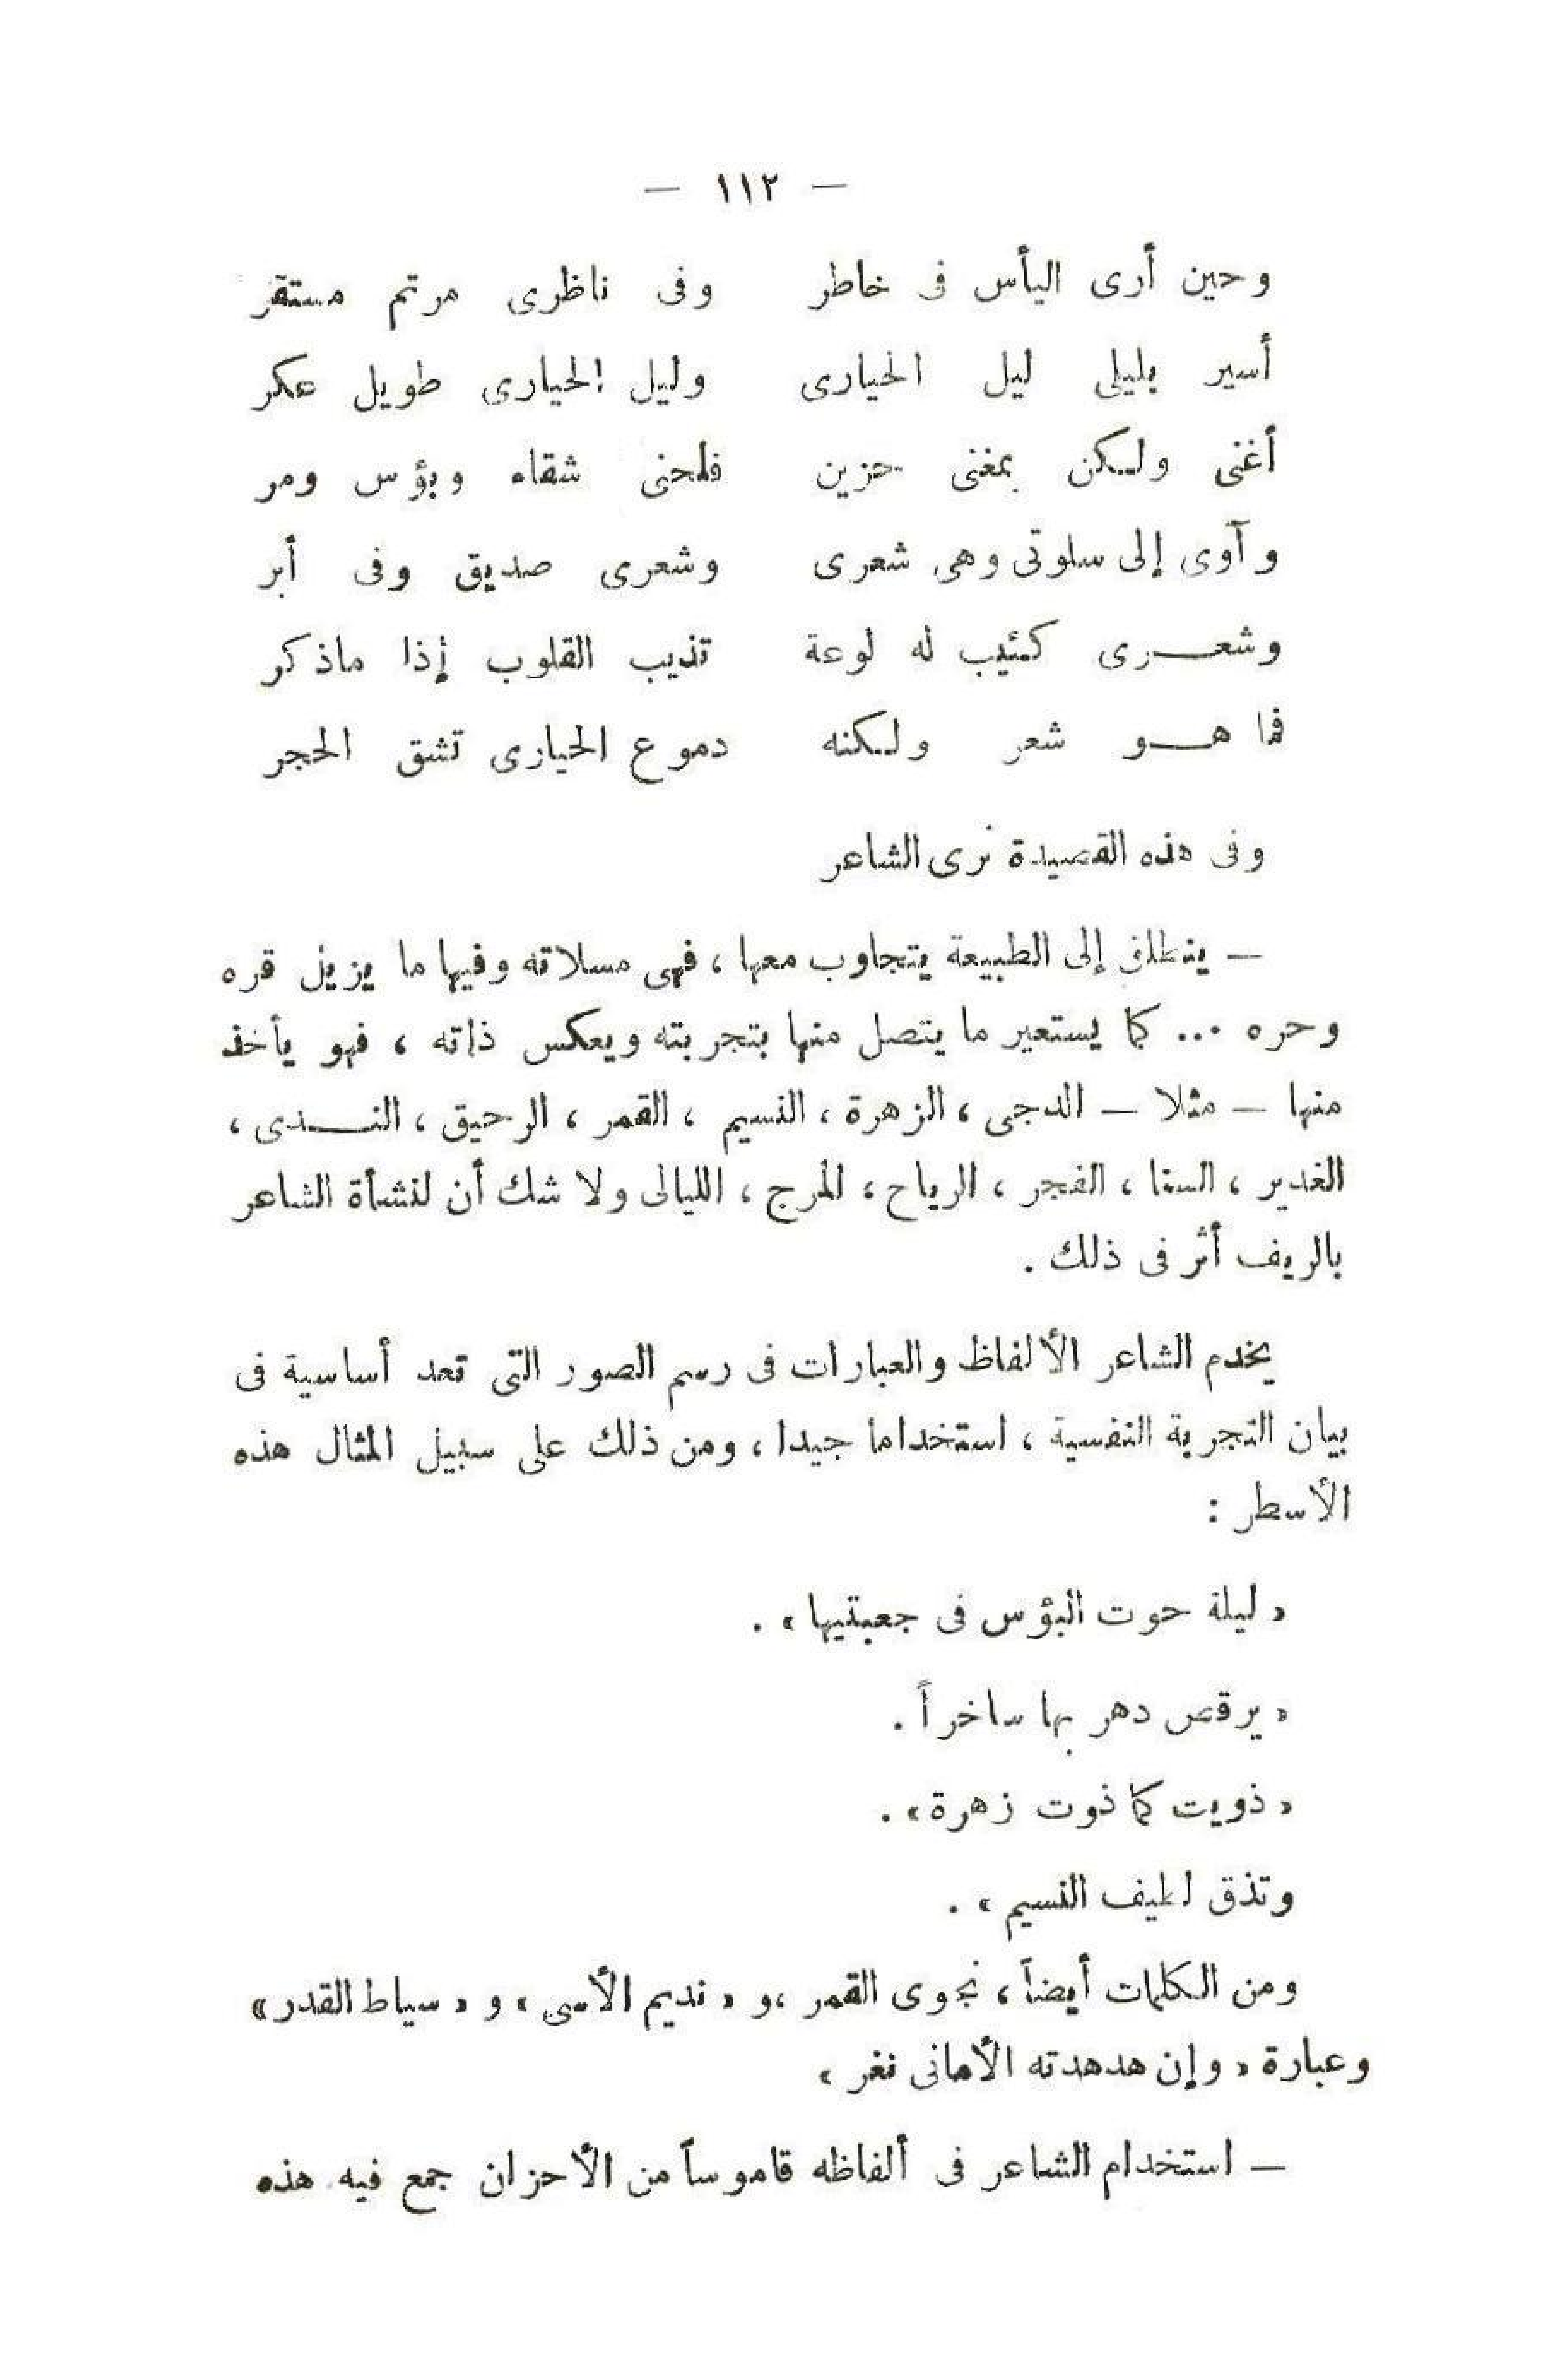 — ١١٢ —
وحين أرى اليأس فى خاطر وفى ناظرى مرتم مستقر
أسير بليلى ليل الحيارى وليل الحيارى طويل عكر
أغنى ولكن بمغنى حزين فلحنى شقاء وبؤس ومر
وآوى إلى سلوتى وهى شعرى وشعرى صديق وفى أبر
وشعرى كئيب له لوعة تذيب القلوب إذا ماذكر
فما هو شعر ولكنه دموع الحيارى تشق الحجر
وفى هذه القصيدة نرى الشاعر
— ينطلق إلى الطبيعة يتجاوب معها ، فهى مسلاته وفيها ما يزيل قره
وحره ... كما يستعير ما يتصل منها بتجربته ويعكس ذاته ، فهو يأخذ
منها — مثلا — الدجى ، الزهرة ، النسيم ، القمر ، الرحيق ، الندى ،
الغدير ، السنا ، الفجر ، الرياح ، المرج ، الليالى ولا شك أن لنشأة الشاعر
بالريف أثر فى ذلك .
يخدم الشاعر الألفاظ والعبارات فى رسم الصور التى تعد أساسية فى
بيان التجربة النفسية ، استخداما جيدا ، ومن ذلك على سبيل المثال هذه
الأسطر :
« ليلة حوت البؤس فى جعبتيها » .
« يرقص دهر بها ساخراً .
« ذويت كما ذوت زهرة » .
وتذق لطيف النسيم » .
ومن الكلمات أيضاً ، نجوى القمر ،و « نديم الأسى » و « سياط القدر »
وعبارة « وإن هدهدته الأمانى نغر »
— استخدام الشاعر فى ألفاظه قاموساً من الأحزان جمع فيه هذه